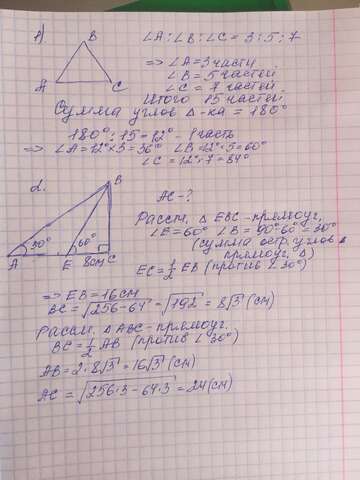 1)
B
A
C
∠A : ∠B : ∠C = 3 : 5 : 7
⇒ ∠A = 3 части
∠B = 5 частей
∠C = 7 частей
Итого 15 частей
Сумма углов Δ-ка = 180°
180° : 15 = 12° - 1 часть
⇒ ∠A = 12°×3 = 36° ∠B = 12°×5 = 60°
∠C = 12°×7 = 84°
2.
B
30°
60°
A
E 8см C
AC - ?
Рассм. Δ EBC - прямоуг.
∠E = 60° ∠B = 90°-60° = 30°
(сумма остр. углов в
прямоуг. Δ)
EC = 1/2 EB (против ∠30°)
⇒ EB = 16 см
BC = √256-64 = √192 = 8√3 (см)
Рассм. Δ ABC - прямоуг.
BC = 1/2 AB (против ∠30°)
AB = 2·8√3 = 16√3 (см)
AC = √256·3 - 64·3 = 24 (см)